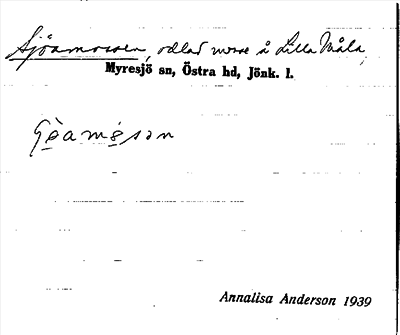 Sjöamossen, odlad mosse å Lilla Måla
Myresjö sn, Östra hd, Jönk. l.
Annalisa Anderson 1939